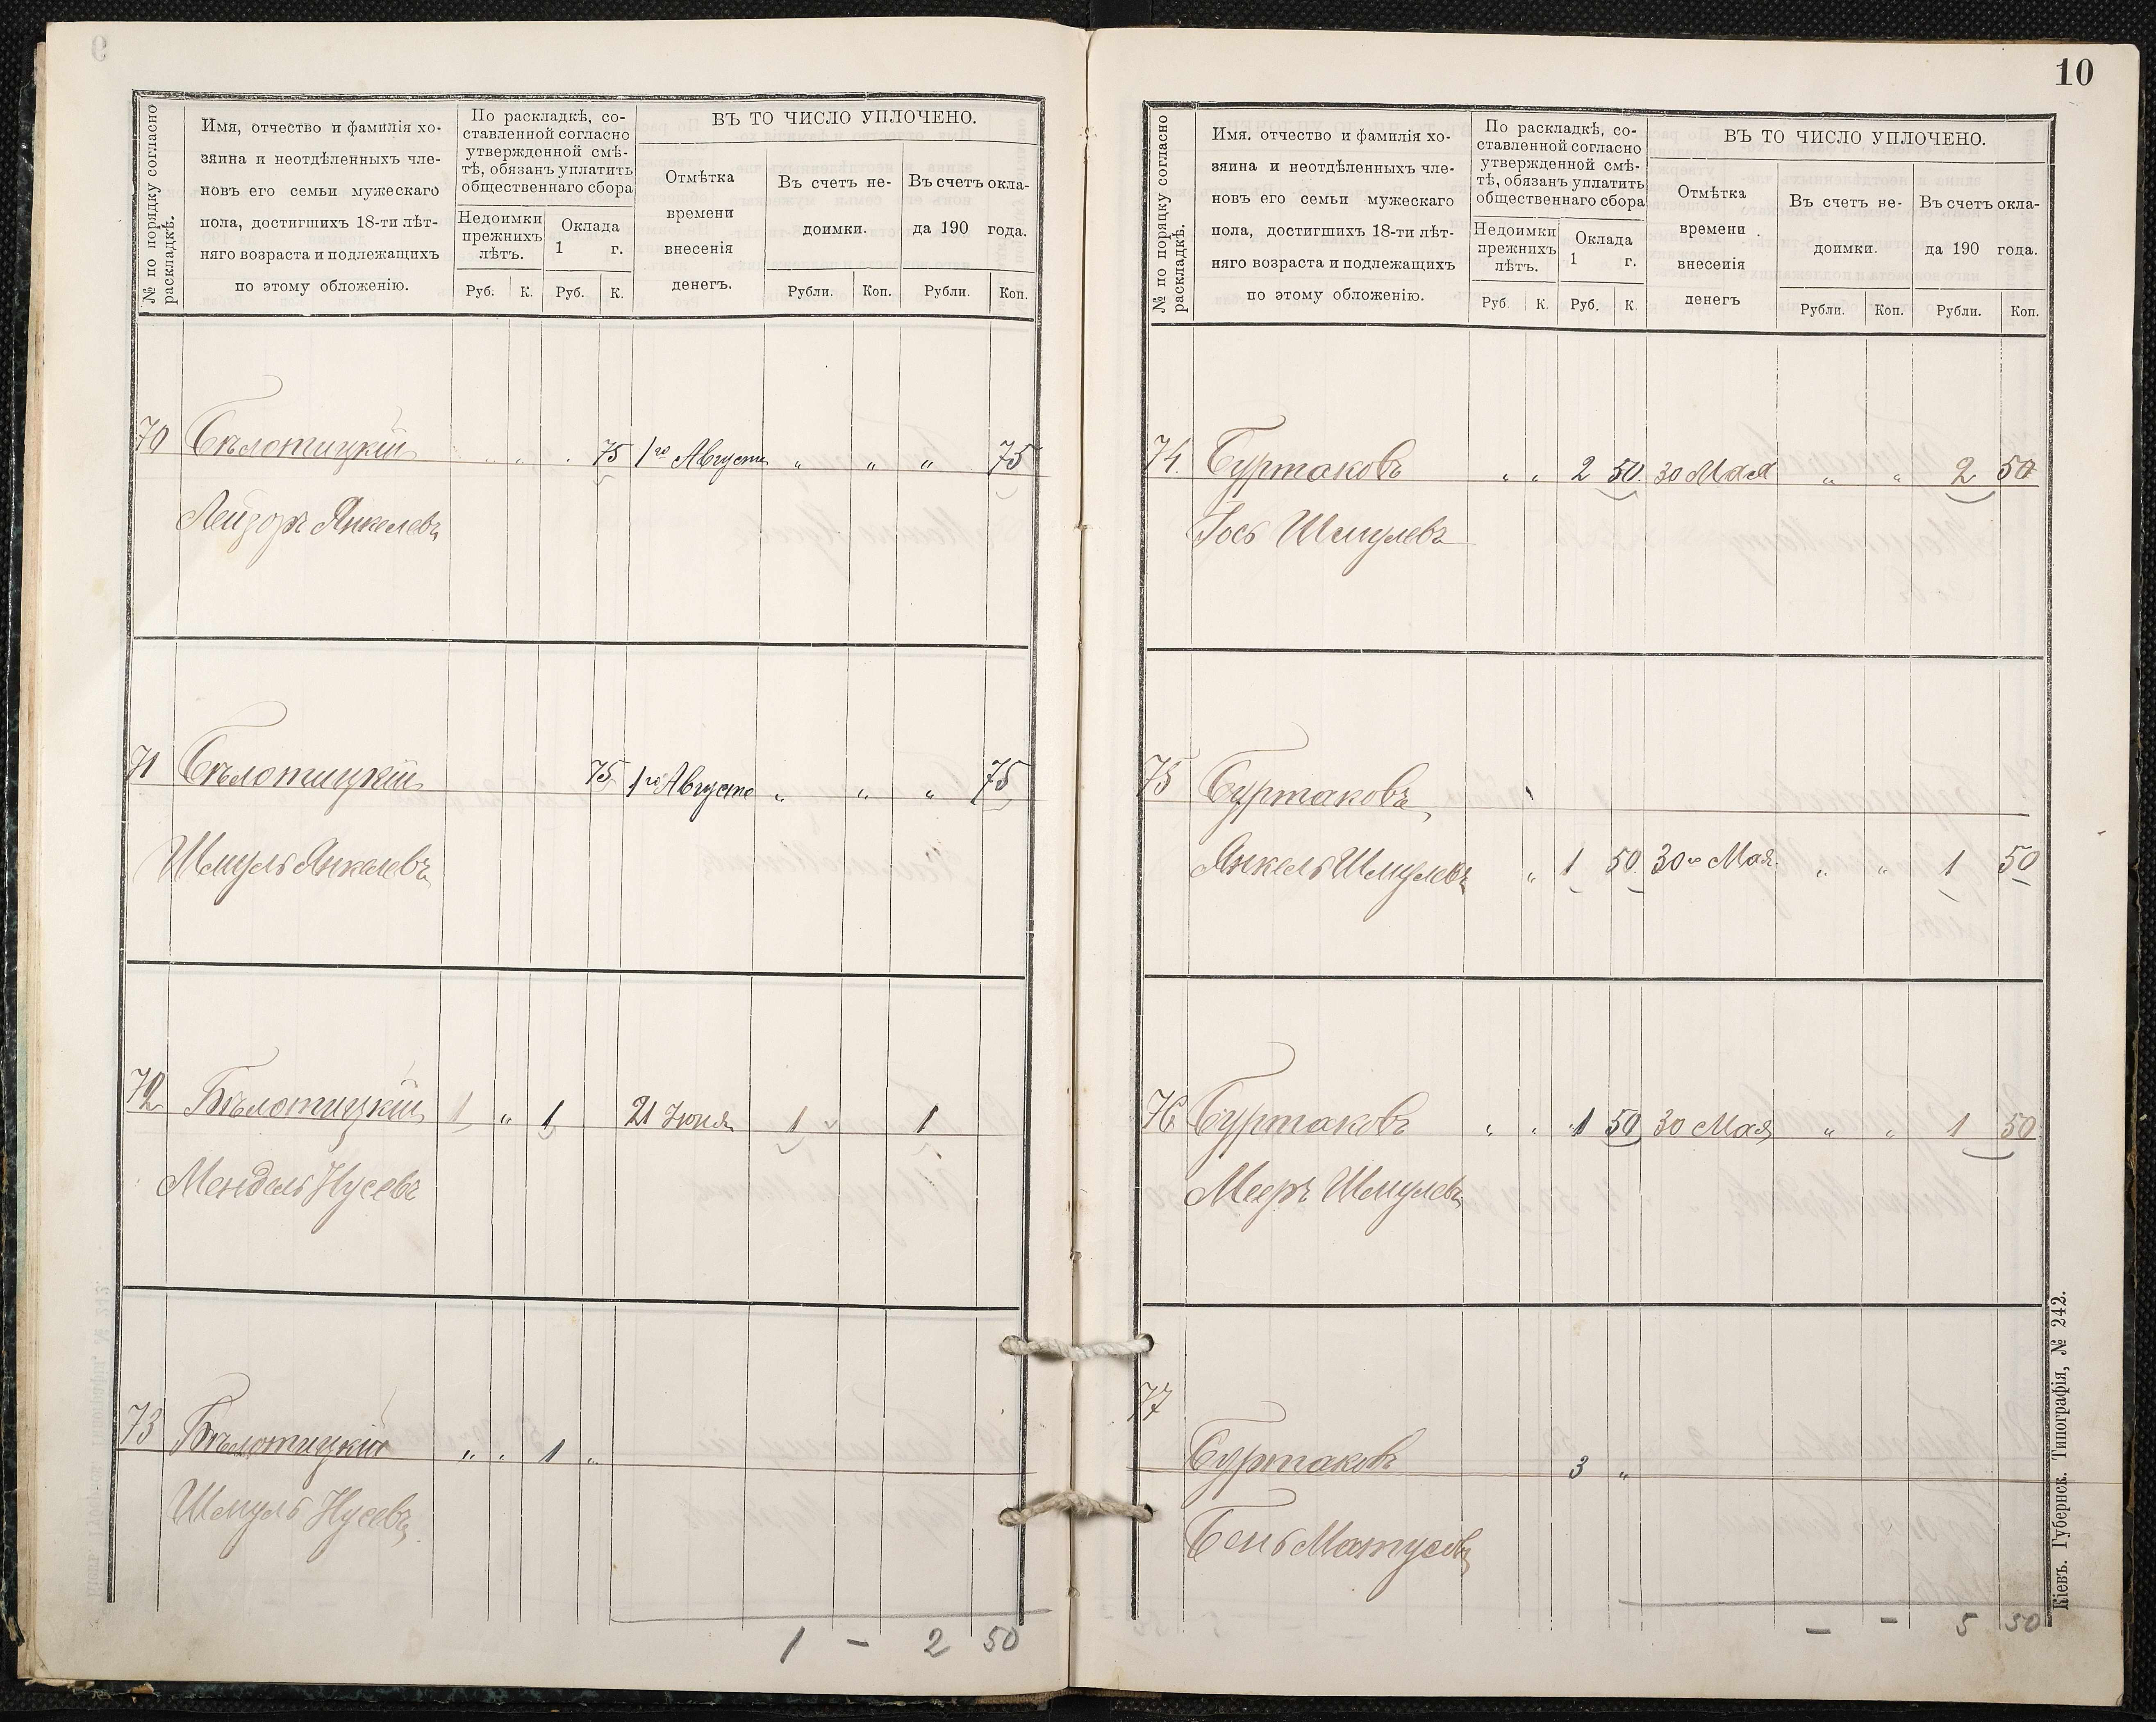 № по порядку согласно
раскладкѣ.
Имя, отчество и фамилія хо-
зяина и неотдѣленныхъ чле-
новъ его семьи мужескаго
пола, достигшихъ 18-ти лѣт-
няго возраста и подлежащихъ
по этому обложенію.
По раскладкѣ, со-
ставленной согласно
утвержденной смѣ-
тѣ, обязанъ уплатить
общественнаго сбора
Недоимки
прежнихъ
лѣтъ.
Оклада
1 г.
Руб. К. Руб. К.
ВЪ ТО ЧИСЛО УПЛОЧЕНО.
Отмѣтка
времени
внесенія
денегъ.
Въ счетъ не-
доимки.
Въ счетъ окла-
да 190 года.
Рубли. Коп. Рубли. Коп.
70 Бѣлотицкій „ . 75 1го Августа „ „ „ 75
Лейзоръ Янкелевъ
71 Бѣлотицкій 75 1го Августа „ „ „ 75
Шмуль Янкелевъ
72 Бѣлотицкій 1 „ 1 21 Іюня 1 1
Мендель Нусевъ
73 Бѣлотицкій „ „ 1 „
Шмуль Нусевъ
1 – 2 50
10
№ по порядку согласно
раскладкѣ.
Имя. отчество и фамилія хо-
зяина и неотдѣленныхъ чле-
новъ его семьи мужескаго
пола, достигшихъ 18-ти лѣт-
няго возраста и подлежащихъ
по этому обложенію.
По раскладкѣ, со-
ставленной согласно
утвержденной смѣ-
тѣ, обязанъ уплатить
общественнаго сбора
Недоимки
прежнихъ
лѣтъ.
Оклада
1 г.
Руб К. Руб. К.
ВЪ ТО ЧИСЛО УПЛОЧЕНО.
Отмѣтка
времени
внесенія
денегъ
Въ счетъ не-
доимки.
Въ счетъ окла-
да 190 года.
Рубли. Коп. Рубли. Коп.
74. Буртаковъ „ „ 2 50. 30 Мая „ „ 2 50
Іось Шмулевъ
75 Буртаковъ
Янкель Шмулевъ „ 1 50. 30го Мая. „ „ 1 50
76 Буртаковъ „ „ 1 50 30 Мая „ „ 1 50
Мееръ Шмулевъ
77
Буртаковъ 3 „
Бень Матусовъ
– – 5 50
Кіевъ. Губернск. Типографія, № 242.